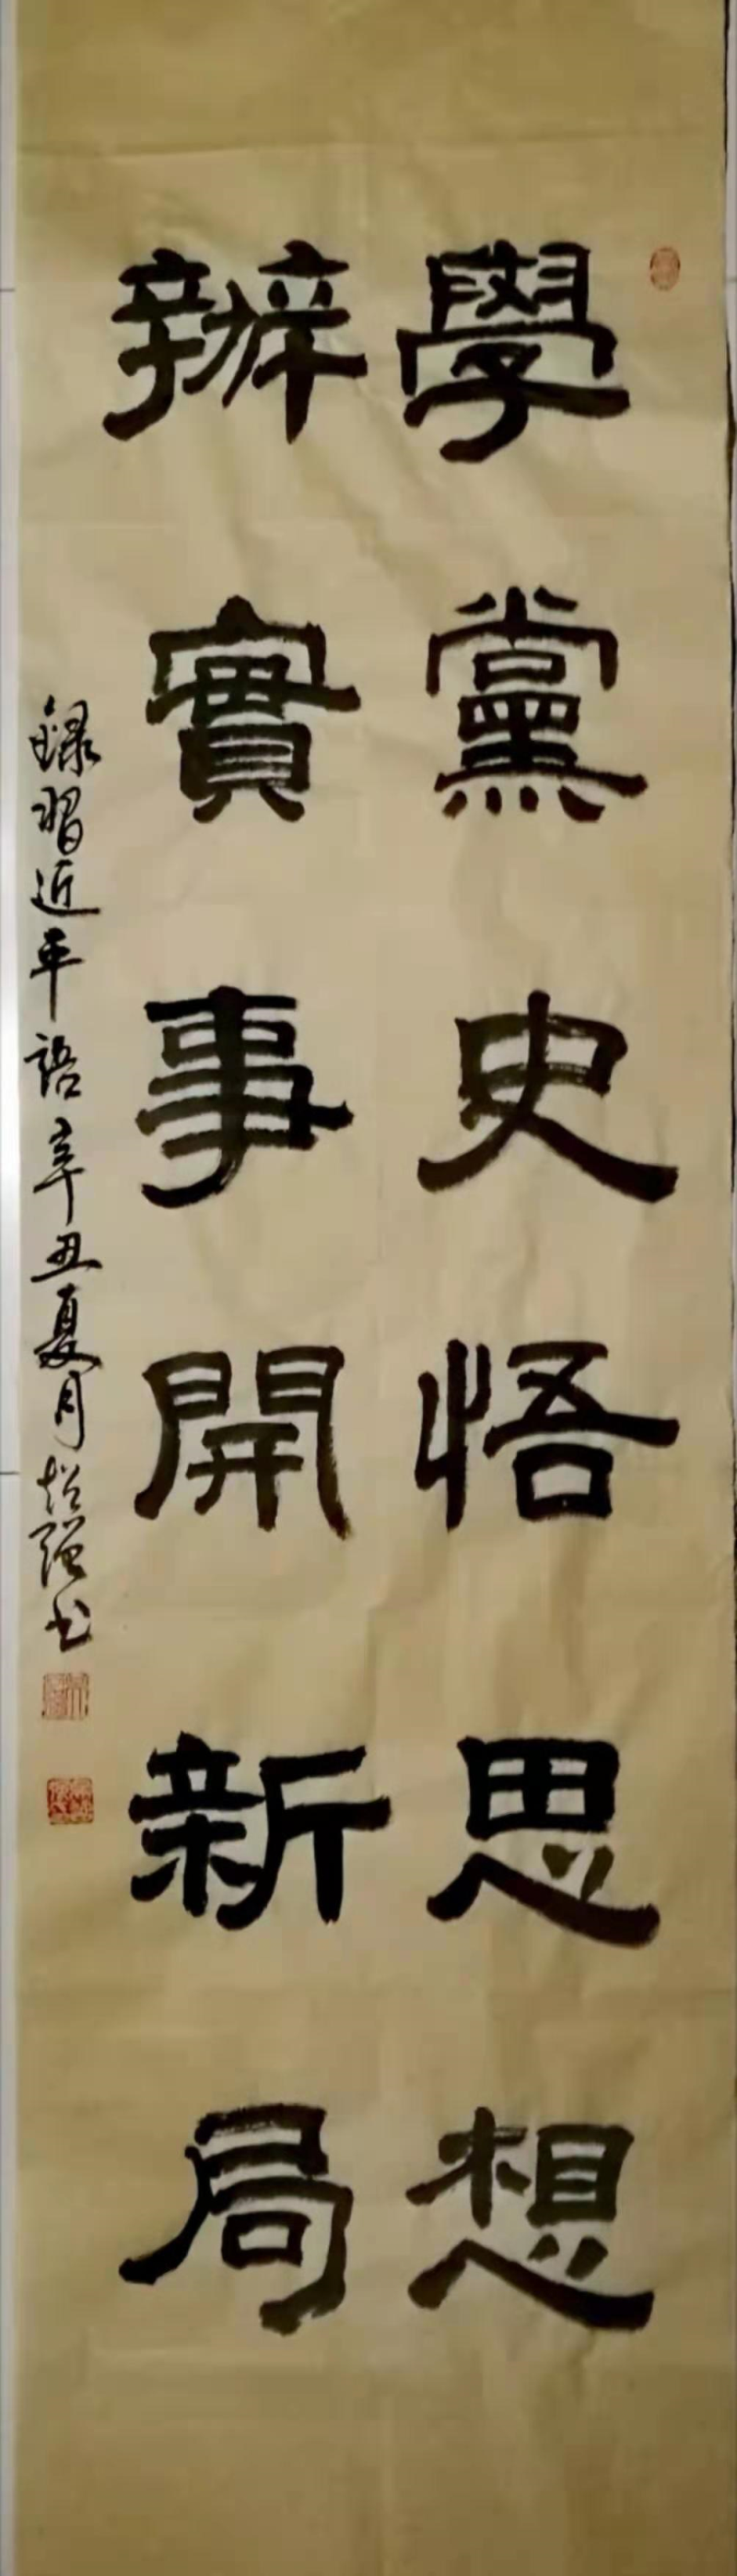 學黨史悟思想
辦實事開新局
録習近平語辛丑夏月
書